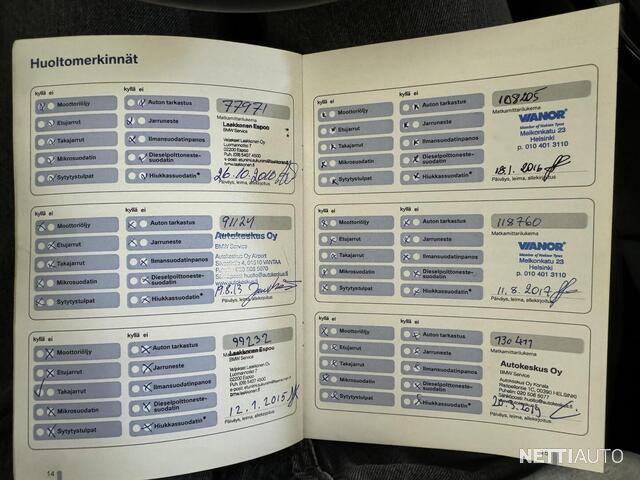 Huoltomerkinnät
kyllä ei
kyllä ei
77971
Moottoriöljy
Auton tarkastus
Matkamittarilukema
Etujarrut
Jarruneste
Laakkonen Espoo
BMW Service
Takajarrut
Ilmansuodatinpanos
Luomannotko 7
02200 Espoo
Mikrosuodatin
Dieselpolttoneste-
suodatin
Sytytystulpat
Hiukkassuodatin*
26.10.2010
Päiväys, leima, allekirjoitus
kyllä ei
kyllä ei
91124
Moottoriöljy
Auton tarkastus
Matkamittarilukema
Etujarrut
Jarruneste
Autokeskus Oy
BMW Service
Takajarrut
Ilmansuodatinpanos
Autokeskus Oy Airport
Mikrosuodatin
Dieselpolttoneste-
suodatin
Sytytystulpat
Hiukkassuodatin*
Päiväys, leima, allekirjoitus
kyllä ei
kyllä ei
99232
Moottoriöljy
Auton tarkastus
Matkamittarilukema
Etujarrut
Jarruneste
Laakkonen Espoo
BMW Service
Takajarrut
Ilmansuodatinpanos
Luomannotko 7
02200 Espoo
Mikrosuodatin
Dieselpolttoneste-
suodatin
Sytytystulpat
Hiukkassuodatin*
12.1.2015
Päiväys, leima, allekirjoitus
14
kyllä ei
kyllä ei
108205
Moottoriöljy
Auton tarkastus
Matkamittarilukema
Etujarrut
Jarruneste
VIANOR
Member of Nokian Tyres
Takajarrut
Ilmansuodatinpanos
Melkonkatu 23
Helsinki
p. 010 401 3110
Mikrosuodatin
Dieselpolttoneste-
suodatin
Sytytystulpat
Hiukkassuodatin*
18.1.2016
Päiväys, leima, allekirjoitus
kyllä ei
kyllä ei
118760
Moottoriöljy
Auton tarkastus
Matkamittarilukema
Etujarrut
Jarruneste
VIANOR
Member of Nokian Tyres
Takajarrut
Ilmansuodatinpanos
Melkonkatu 23
Helsinki
p. 010 401 3110
Mikrosuodatin
Dieselpolttoneste-
suodatin
Sytytystulpat
Hiukkassuodatin*
11.8.2017
Päiväys, leima, allekirjoitus
kyllä ei
kyllä ei
130411
Moottoriöljy
Auton tarkastus
Matkamittarilukema
Etujarrut
Jarruneste
Autokeskus Oy
BMW Service
Takajarrut
Ilmansuodatinpanos
Autokeskus Oy Konala
Ristipellontie 1C, 00390 HELSINKI
Puhelin 020 506 5077
Mikrosuodatin
Dieselpolttoneste-
suodatin
Sytytystulpat
Hiukkassuodatin*
20.3.2019
Päiväys, leima, allekirjoitus
NETTIAUTO